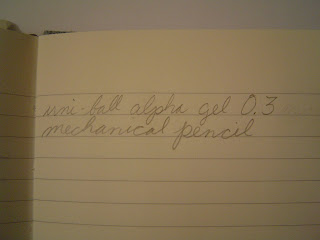 uni-ball alpha gel 0.3
mechanical pencil